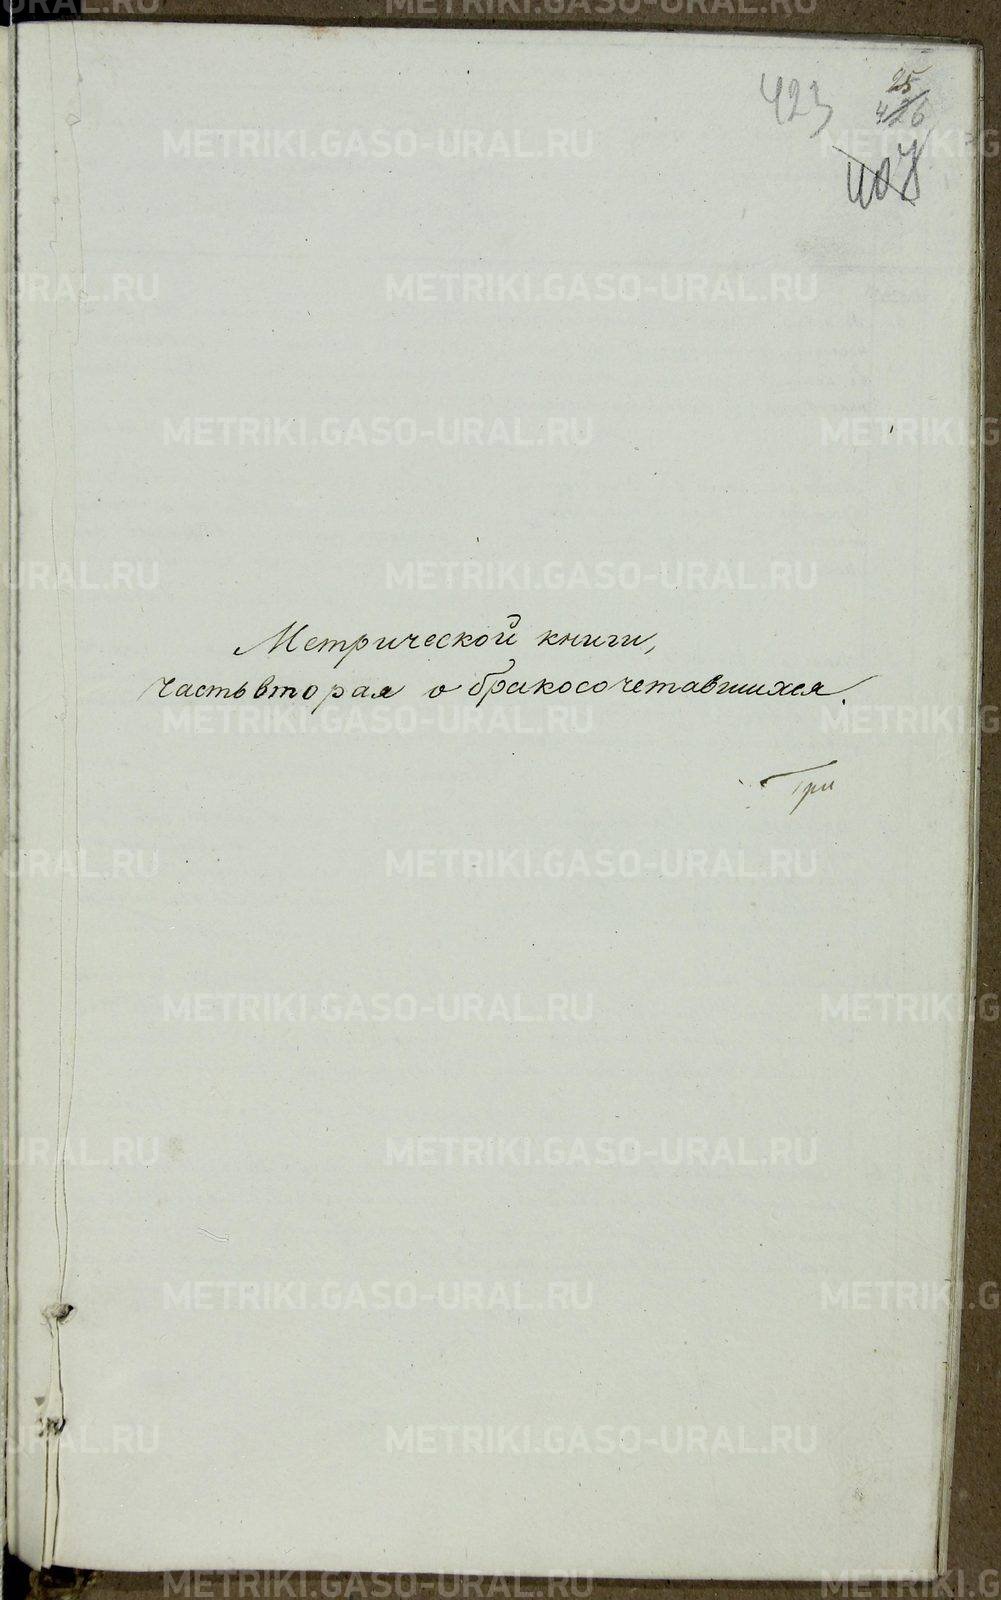 423
25
426
407
Метрической книги,
часть вторая о бракосочетавшихся.
Три
METRIKI.GASO-URAL.RU